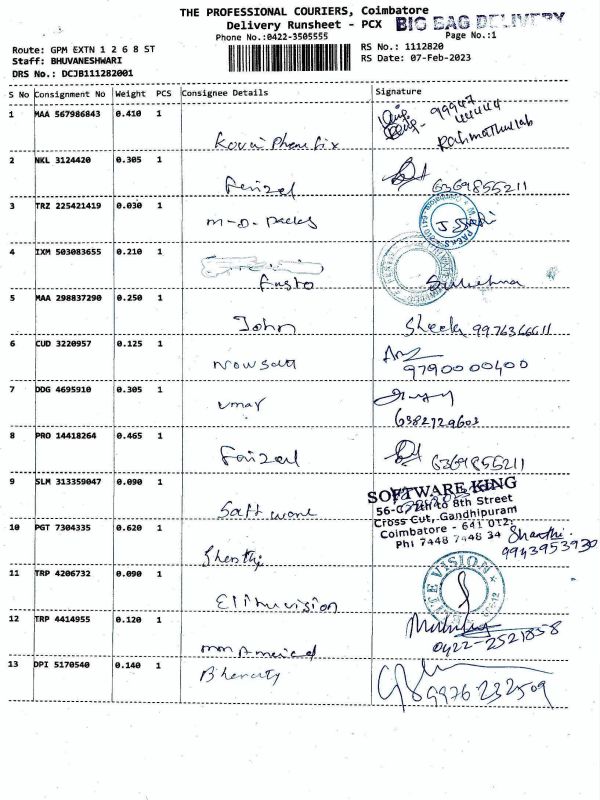 THE PROFESSIONAL COURIERS, Coimbatore
Delivery Runsheet - PCX BIG BAG DELIVERY
Phone No.:0422-3505555 Page No.:1
Route: GPM EXTN 1 2 6 8 ST RS No.: 1112820
Staff: BHUVANESHWARI RS Date: 07-Feb-2023
DRS No.: DCJB111282001
S No Consignment No Weight PCS Consignee Details Signature
1 MAA 567986843 0.410 1
99947
44444
Rahmathullah
2 NKL 3124420 0.305 1
Faizal 6369855211
3 TRZ 225421419 0.030 1
M-D. Packs
4 IXM 503083655 0.210 1
5 MAA 298837290 0.250 1
John Sheela 9976366611
6 CUD 3220957 0.125 1
9790000400
7 DDG 4695910 0.305 1
Umar
6382729603
8 PRO 14418264 0.465 1
Faizal 6369855211
9 SLM 313359047 0.090 1
SOFTWARE KING
56-C, 7th to 8th Street
Cross Cut, Gandhipuram
Coimbatore - 641 012.
Ph: 7448 7448 34
10 PGT 7304335 0.620 1
Shanthi Shanthi.
9943953930
11 TRP 4206732 0.090 1
Elitevision
12 TRP 4414955 0.120 1
0422-2521858
13 DPI 5170540 0.140 1
9976232509